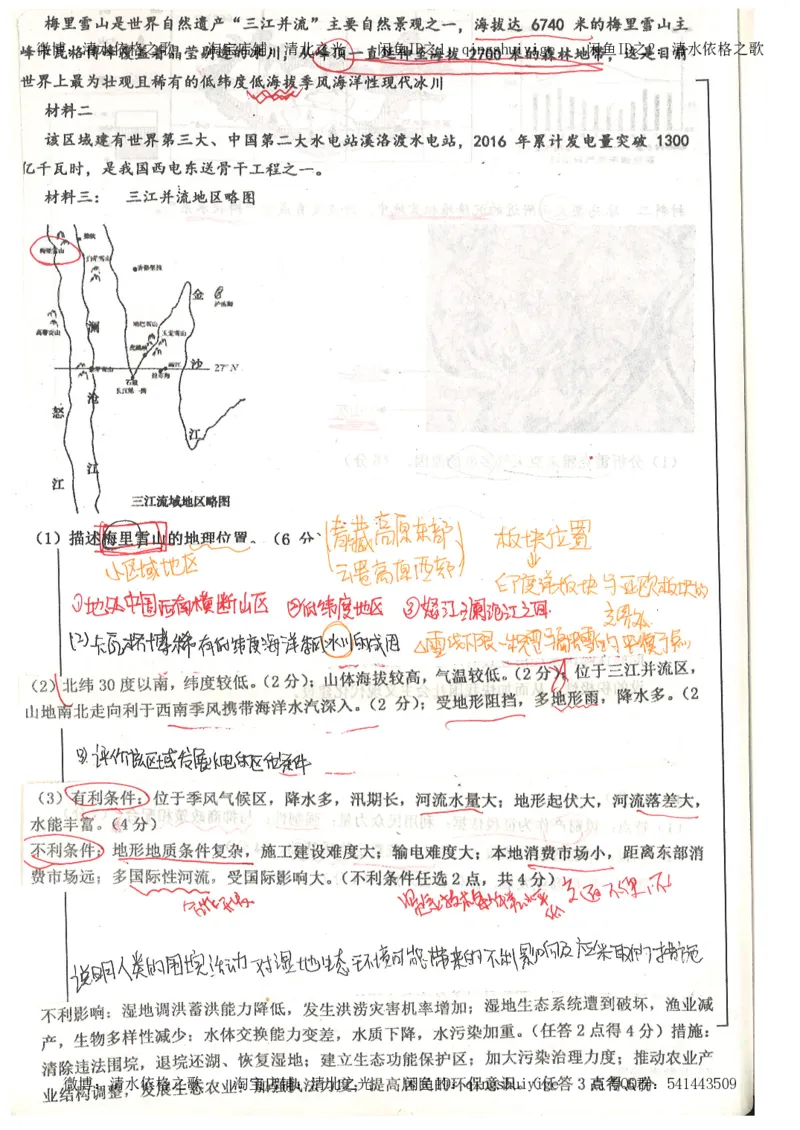 梅里雪山是世界自然遗产“三江并流”主要自然景观之一，海拔达 6740 米的梅里雪山主
峰卡瓦格博峰覆盖着晶莹剔透的冰川，从峰顶一直延伸至海拔 2700 米的森林地带，这是目前
世界上最为壮观且稀有的低纬度低海拔季风海洋性现代冰川
材料二
该区域建有世界第三大、中国第二大水电站溪洛渡水电站，2016 年累计发电量突破 1300
亿千瓦时，是我国西电东送骨干工程之一。
材料三：　三江并流地区略图
梅里雪山
白茫雪山
香格里拉
金
泸沽湖
澜
哈巴雪山
玉龙雪山
高黎贡山
虎跳峡
沙
27° N
丽江
石鼓
长江第一湾
怒
沧
江
江
江
三江流域地区略图
（1）描述梅里雪山的地理位置。（6 分）
青藏高原东部
云贵高原西部
板块位置
小区域地区
印度洋板块与亚欧板块的
交界处
①地处中国西南横断山区 ②低纬度地区 ③怒江与澜沧江之间
(2)卡瓦格博峰稀有低纬度海洋
冰川的成因
（2）北纬 30 度以南，纬度较低。（2 分）；山体海拔较高，气温较低。（2 分）；位于三江并流区，
山地南北走向利于西南季风携带海洋水汽深入。（2 分）；受地形阻挡，多地形雨，降水多。（2
评价该区域发展水电的区位条件
（3）有利条件：位于季风气候区，降水多，汛期长，河流水量大；地形起伏大，河流落差大，
水能丰富。（4 分）
不利条件：地形地质条件复杂，施工建设难度大；输电难度大；本地消费市场小，距离东部消
费市场远；多国际性河流，受国际影响大。（不利条件任选 2 点，共 4 分）
说明人类的围垦活动对湿地生态环境可能带来的不利影响及应采取的措施
不利影响：湿地调洪蓄洪能力降低，发生洪涝灾害机率增加；湿地生态系统遭到破坏，渔业减
产，生物多样性减少；水体交换能力变差，水质下降，水污染加重。（任答 2 点得 4 分）措施：
清除违法围垸，退垸还湖、恢复湿地；建立生态功能保护区；加大污染治理力度；推动农业产
业结构调整，发展生态农业；加强执法力度；提高居民的环保意识。（任答 3 点得 6 分）
微博：清水依格之歌　淘宝店铺：清北之光　闲鱼ID：qingshuiyige　高考QQ群：541443509